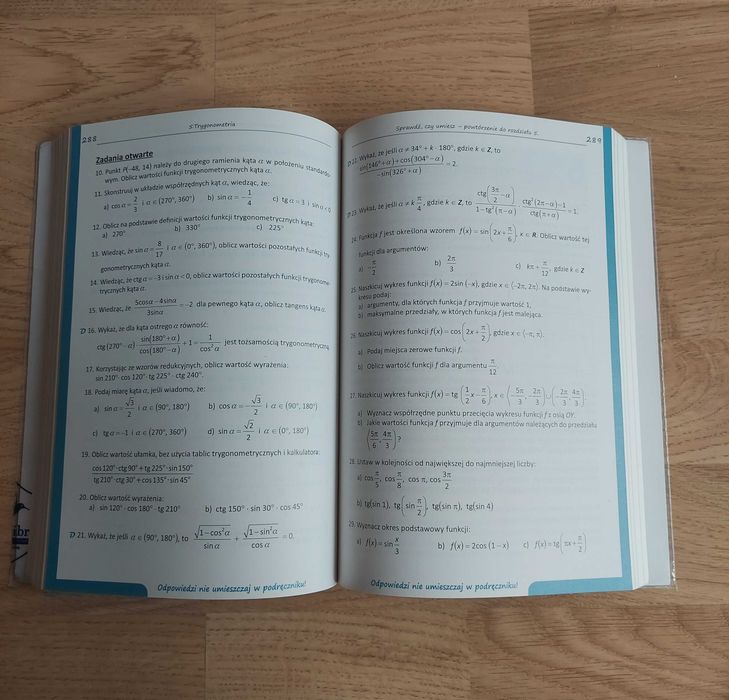 288
5. Trygonometria
Zadania otwarte
10. Punkt P(–48, 14) należy do drugiego ramienia kąta α w położeniu standardo-
wym. Oblicz wartości funkcji trygonometrycznych kąta α.
11. Skonstruuj w układzie współrzędnych kąt α, wiedząc, że:
a) cos α = 2/3 i α ∈ (270°, 360°) b) sin α = –1/4 c) tg α = 3 i sin α < 0
12. Oblicz na podstawie definicji wartości funkcji trygonometrycznych kąta:
a) 270° b) 330° c) 225°
13. Wiedząc, że sin α = 8/17 i α ∈ (0°, 360°), oblicz wartości pozostałych funkcji try-
gonometrycznych kąta α.
14. Wiedząc, że ctg α = –3 i sin α < 0, oblicz wartości pozostałych funkcji trygonome-
trycznych kąta α.
15. Wiedząc, że (5cosα – 4sinα)/(3sinα) = –2 dla pewnego kąta α, oblicz tangens kąta α.
D 16. Wykaż, że dla kąta ostrego α równość:
ctg(270° – α) · sin(180° + α)/cos(180° – α) + 1 = 1/cos²α jest tożsamością trygonometryczną.
17. Korzystając ze wzorów redukcyjnych, oblicz wartość wyrażenia:
sin 210° · cos 120° · tg 225° · ctg 240°.
18. Podaj miarę kąta α, jeśli wiadomo, że:
a) sin α = √3/2 i α ∈ (90°, 180°) b) cos α = –√3/2 i α ∈ (90°, 180°)
c) tg α = –1 i α ∈ (270°, 360°) d) sin α = √2/2 i α ∈ (0°, 180°)
19. Oblicz wartość ułamka, bez użycia tablic trygonometrycznych i kalkulatora:
(cos 120° · ctg 90° + tg 225° · sin 150°)/(tg 210° · ctg 30° + cos 135° · sin 45°)
20. Oblicz wartość wyrażenia:
a) sin 120° · cos 180° · tg 210° b) ctg 150° · sin 30° · cos 45°
D 21. Wykaż, że jeśli α ∈ (90°, 180°), to √(1 – cos²α)/sin α + √(1 – sin²α)/cos α = 0.
Odpowiedzi nie umieszczaj w podręczniku!
Sprawdź, czy umiesz – powtórzenie do rozdziału 5.
289
D 22. Wykaż, że jeśli α ≠ 34° + k · 180°, gdzie k ∈ Z, to
(sin(146° + α) + cos(304° – α))/(–sin(326° + α)) = 2.
D 23. Wykaż, że jeśli α ≠ k π/4, gdzie k ∈ Z, to ctg(3π/2 – α)/(1 – tg²(π – α)) · (ctg²(2π – α) – 1)/ctg(π + α) = 1.
24. Funkcja f jest określona wzorem f(x) = sin(2x + π/6), x ∈ R. Oblicz wartość tej
funkcji dla argumentów:
a) –π/2 b) 2π/3 c) kπ + π/12, gdzie k ∈ Z
25. Naszkicuj wykres funkcji f(x) = 2sin(–x), gdzie x ∈ ⟨–2π, 2π⟩. Na podstawie wy-
kresu podaj:
a) argumenty, dla których funkcja f przyjmuje wartość 1,
b) maksymalne przedziały, w których funkcja f jest malejąca.
26. Naszkicuj wykres funkcji f(x) = cos(2x + π/2), gdzie x ∈ ⟨–π, π⟩.
a) Podaj miejsca zerowe funkcji f.
b) Oblicz wartość funkcji f dla argumentu π/12
27. Naszkicuj wykres funkcji f(x) = tg(1/2 x – π/6), x ∈ ⟨–5π/3, –2π/3) ∪ (–2π/3, 4π/3)
a) Wyznacz współrzędne punktu przecięcia wykresu funkcji f z osią OY.
b) Jakie wartości funkcja f przyjmuje dla argumentów należących do przedziału
(5π/6, 4π/3)?
28. Ustaw w kolejności od największej do najmniejszej liczby:
a) cos π/5, cos π/8, cos π, cos 3π/2
b) tg(sin 1), tg(sin π/2), tg(sin π), tg(sin 4)
29. Wyznacz okres podstawowy funkcji:
a) f(x) = sin x/3 b) f(x) = 2cos (1 – x) c) f(x) = tg(πx + π/2)
Odpowiedzi nie umieszczaj w podręczniku!